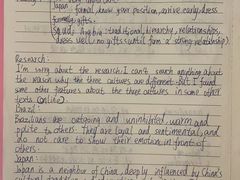 Japan: formal, know your position, arrive early, dress
formally, gifts.
Saudi Arabia: traditional, hierarchy, relationships,
dress well, no gifts (until form a strong relationship)
Research:
I'm sorry about the research I can't search anything about
the reason why the three cultures are different. But I found
some other features about the three cultures in some other
texts (online).
Brazil:
Brazilians are outgoing and uninhibited, warm and
polite to others. They are loyal and sentimental, and
do not care to show their emotion in front of
others.
Japan:
Japan is a neighbor of China, deeply influenced by China's